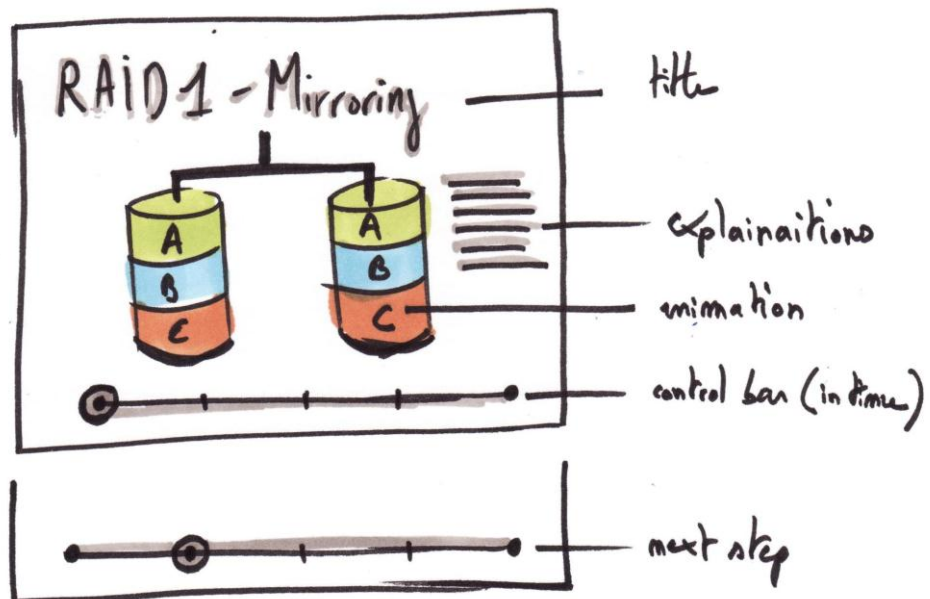 RAiD 1 - Mirroring
title
A
A
B
B
C
C
explainaitions
animation
control bar (in time)
next step